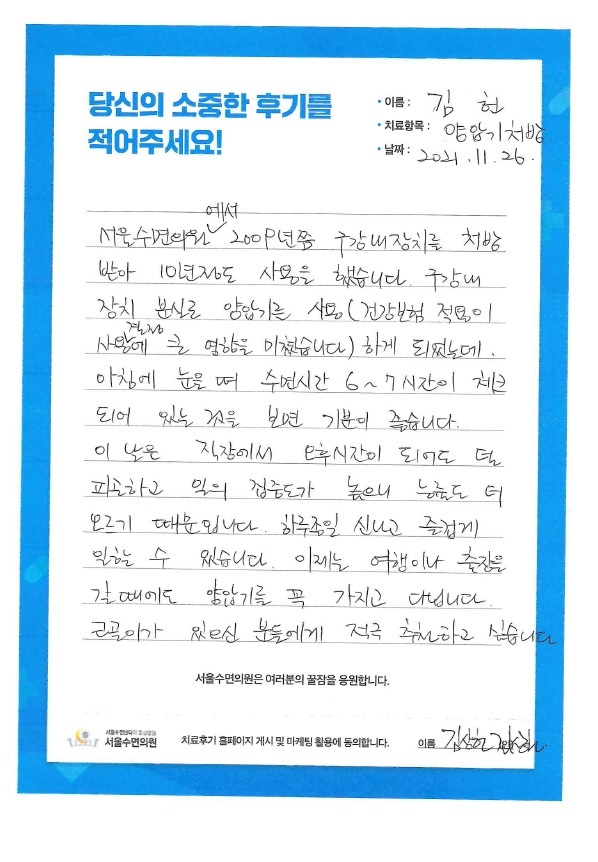 당신의 소중한 후기를
적어주세요!
• 이름 : 김 현
• 치료항목 : 양압기처방
• 날짜 : 2021.11.26.
에서
서울수면의원 2009년쯤 구강내장치를 처방
받아 10년정도 사용을 했습니다. 구강내
장치 분실로 양압기를 사용(건강보험 적용이
결정
사람에 큰 영향을 미쳤습니다)하게 되었는데.
아침에 눈을 떠 수면시간 6~7시간이 체크
되어 있는 것을 보면 기분이 좋습니다.
이 날은 직장에서 오후시간이 되어도 덜
피곤하고 일의 집중도가 높으니 능률도 더
오르기 때문입니다. 하루종일 신나고 즐겁게
일하는 수 있습니다. 이제는 여행이나 출장을
갈때에도 양압기를 꼭 가지고 다닙니다.
코골이가 있으신 분들에게 적극 추천하고 싶습니다
서울수면의원은 여러분의 꿀잠을 응원합니다.
서울수면의원
치료후기 홈페이지 게시 및 마케팅 활용에 동의합니다.
이름 김상현